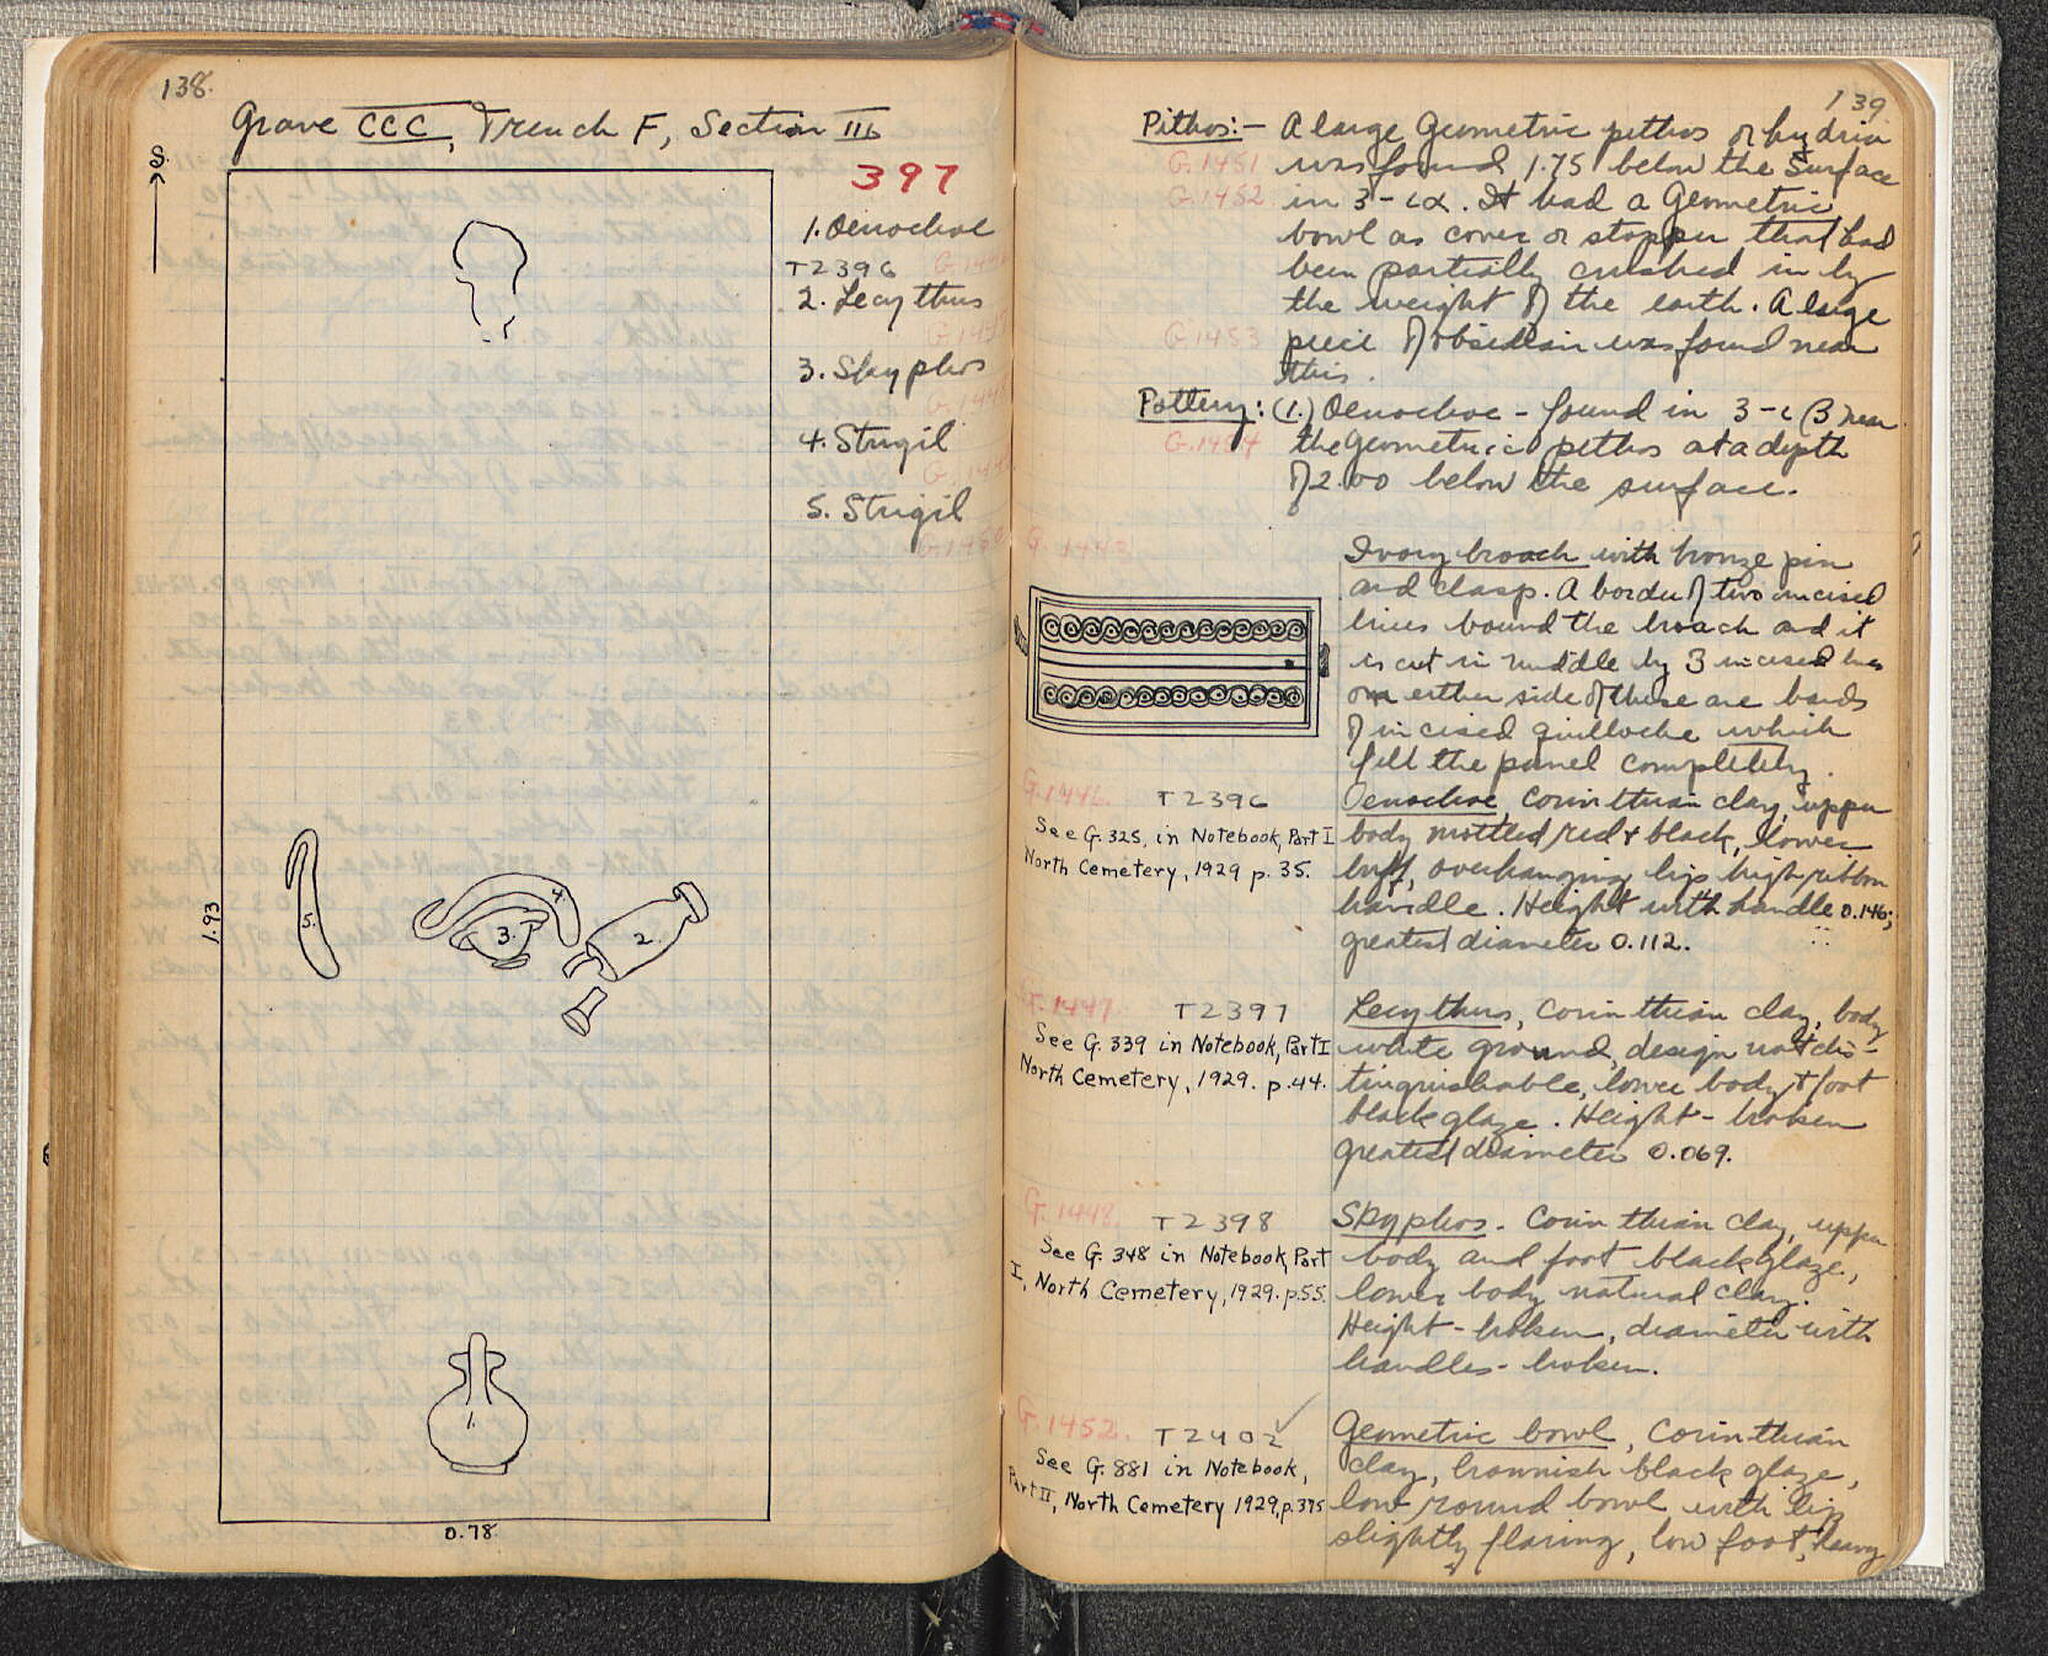 138.
Grave CCC, Trench F, Section III b
S.
397
1. Oenochoe
T2396
2. Lecythus
3. Skyphos
4. Strigil
5. Strigil
5.
4.
3.
2.
1.93
1.
0.78
139
Pithos:- A large Geometric pithos or hydria
G.1451 was found 1.75 below the surface
G.1452 in 3-ια. It had a Geometric
bowl as cover or stopper that had
been partially crushed in by
the weight of the earth. A large
G.1453 piece of obsidian was found near
this.
Pottery: (1.) Oenochoe - found in 3-ι β near
G.1454 the Geometric pithos at a depth
of 2.00 below the surface.
Ivory broach with bronze pin
and clasp. A border of two incised
lines bound the broach and it
is cut in middle by 3 incised lines
on either side of these are bands
of incised guilloche which
fill the panel completely.
G.1446. T2396
See G.325, in Notebook, Part I
North Cemetery, 1929 p. 35.
Oenochoe Corinthian clay, upper
body mottled red & black, lower
buff, overhanging lip high ribbon
handle. Height with handle 0.146;
greatest diameter 0.112.
G.1447 T2397
See G. 339 in Notebook, Part I
North Cemetery, 1929. p.44.
Lecythus, Corinthian clay, body
white ground, design not dis-
tinguishable, lower body & foot
black glaze. Height - broken
greatest diameter 0.069.
G.1448 T2398
See G. 348 in Notebook, Part
I, North Cemetery, 1929. p.55.
Skyphos. Corinthian clay, upper
body and foot black glaze,
lower body natural clay.
Height - broken, diameter with
handles - broken.
G.1452. T2402
See G. 881 in Notebook,
Part II, North Cemetery 1929, p.375
Geometric bowl, Corinthian
clay, brownish black glaze,
low round bowl with lip
slightly flaring, low foot, heavy